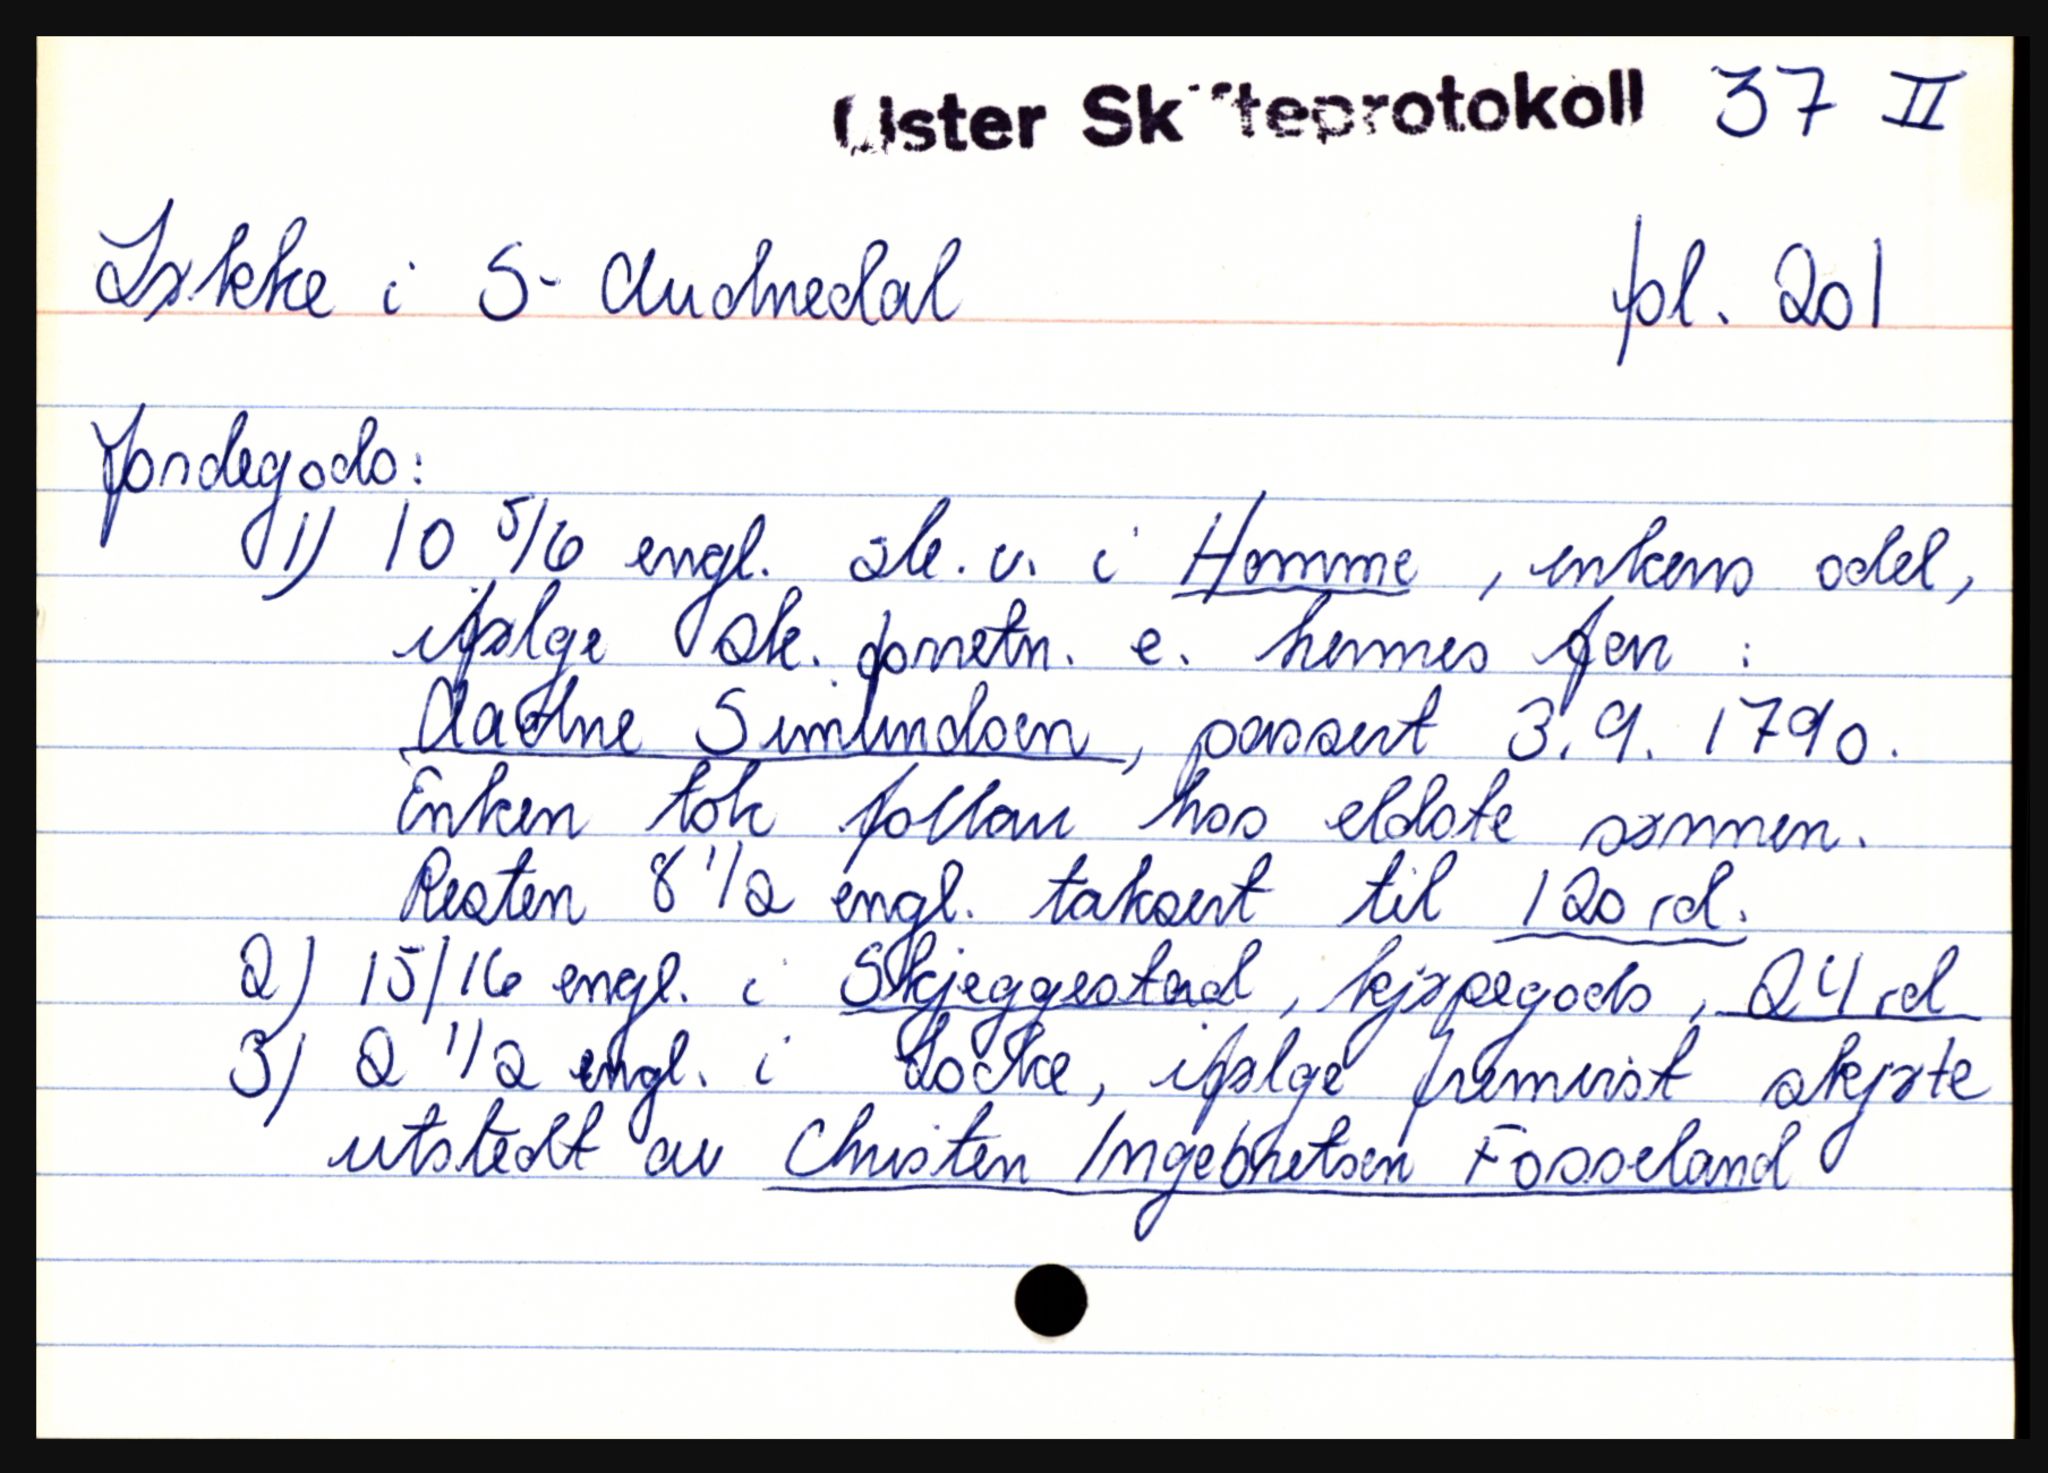 Lister Skifteprotokoll 37 II
Løkke i S- Audnedal fol. 201
Jordegods:
1) 10 5/6 engl. sk. v. i Homme, enkens odel,
ifølge sk. forretn. e. hennes
Aadne Simundsen, passert 3.9. 1790.
Enken tok follau hos eldste sønnen.
Resten 8 1/2 engl. taksert til 120 rd.
2) 15/16 engl. i Skjeggestad, kjøpegods, 24 rd
3) 2 1/2 engl. i Løcke, ifølge fremvist skjøte
utstedt av Christen Ingebretsen Fosseland